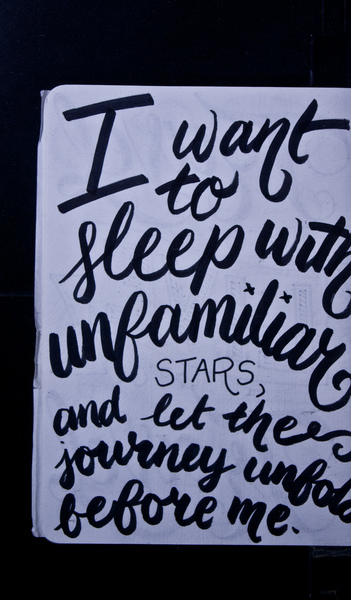 I want
to
sleep with
unfamiliar
STARS,
and let the
journey unfold
before me.